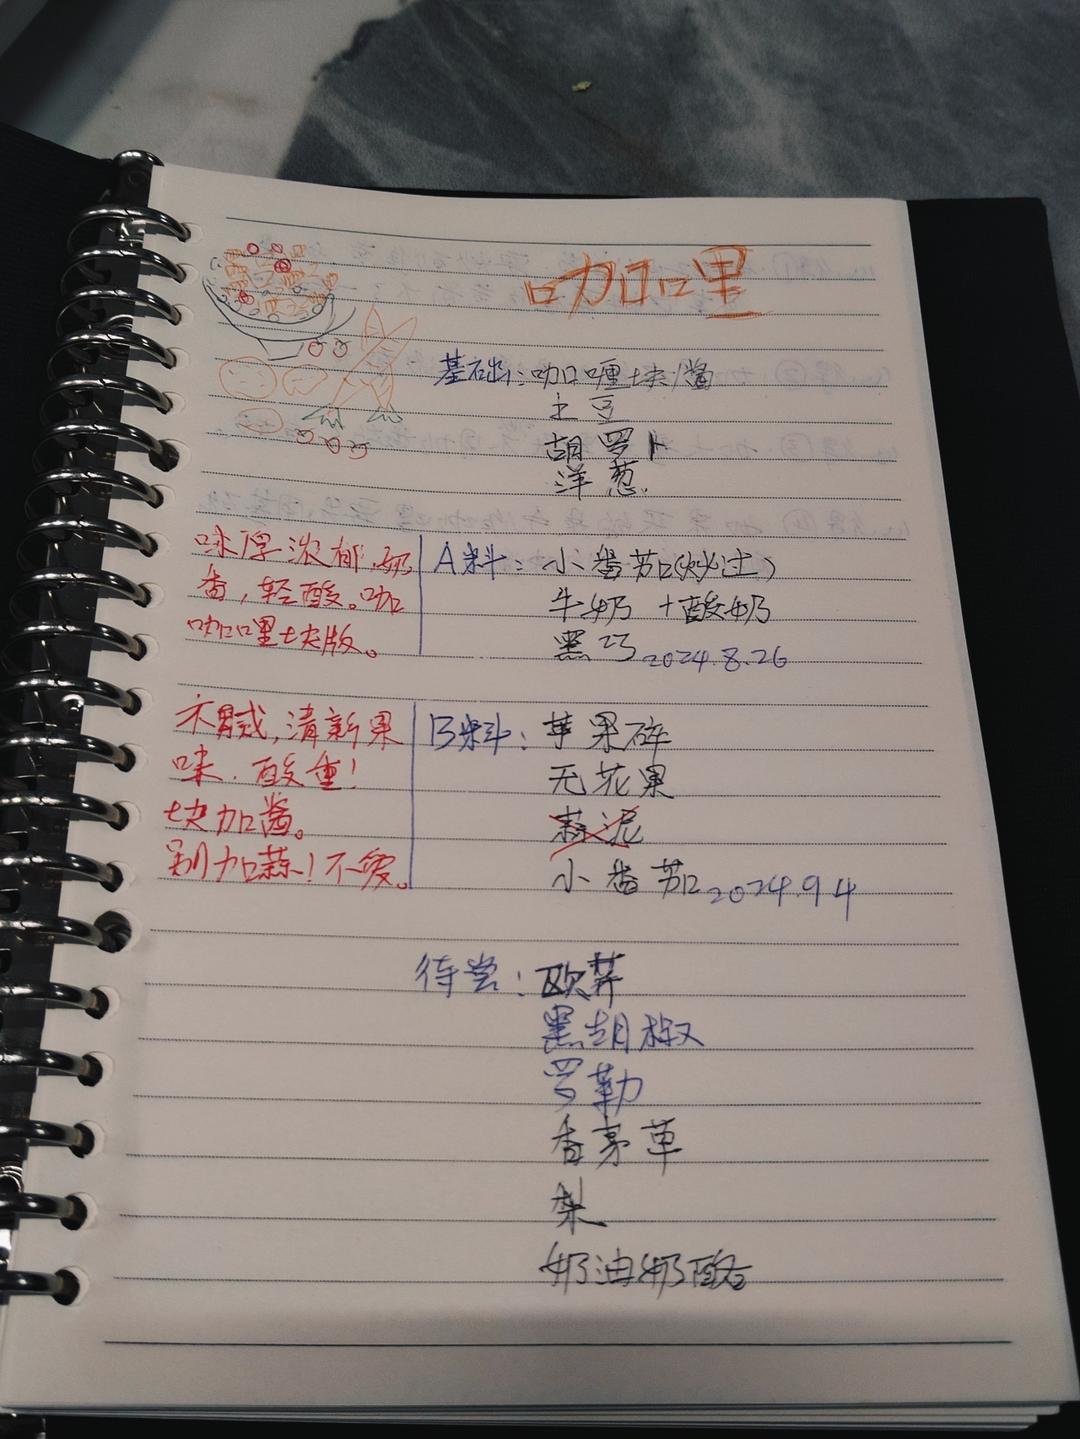 咖喱
基础:咖喱块/酱
土豆
胡罗卜
洋葱.
味厚浓郁.奶
香,轻酸。咖
咖哩块版。
A料:小番茄(炒过)
牛奶+酸奶
黑巧2024.8.26
不腻,清新果
味.酸重!
块加酱。
别加蒜!不爱。
B料:苹果碎
无花果
蒜泥
小番茄2024.9.4
待尝:欧芹
黑胡椒
罗勒
香茅草
梨
奶油奶酪